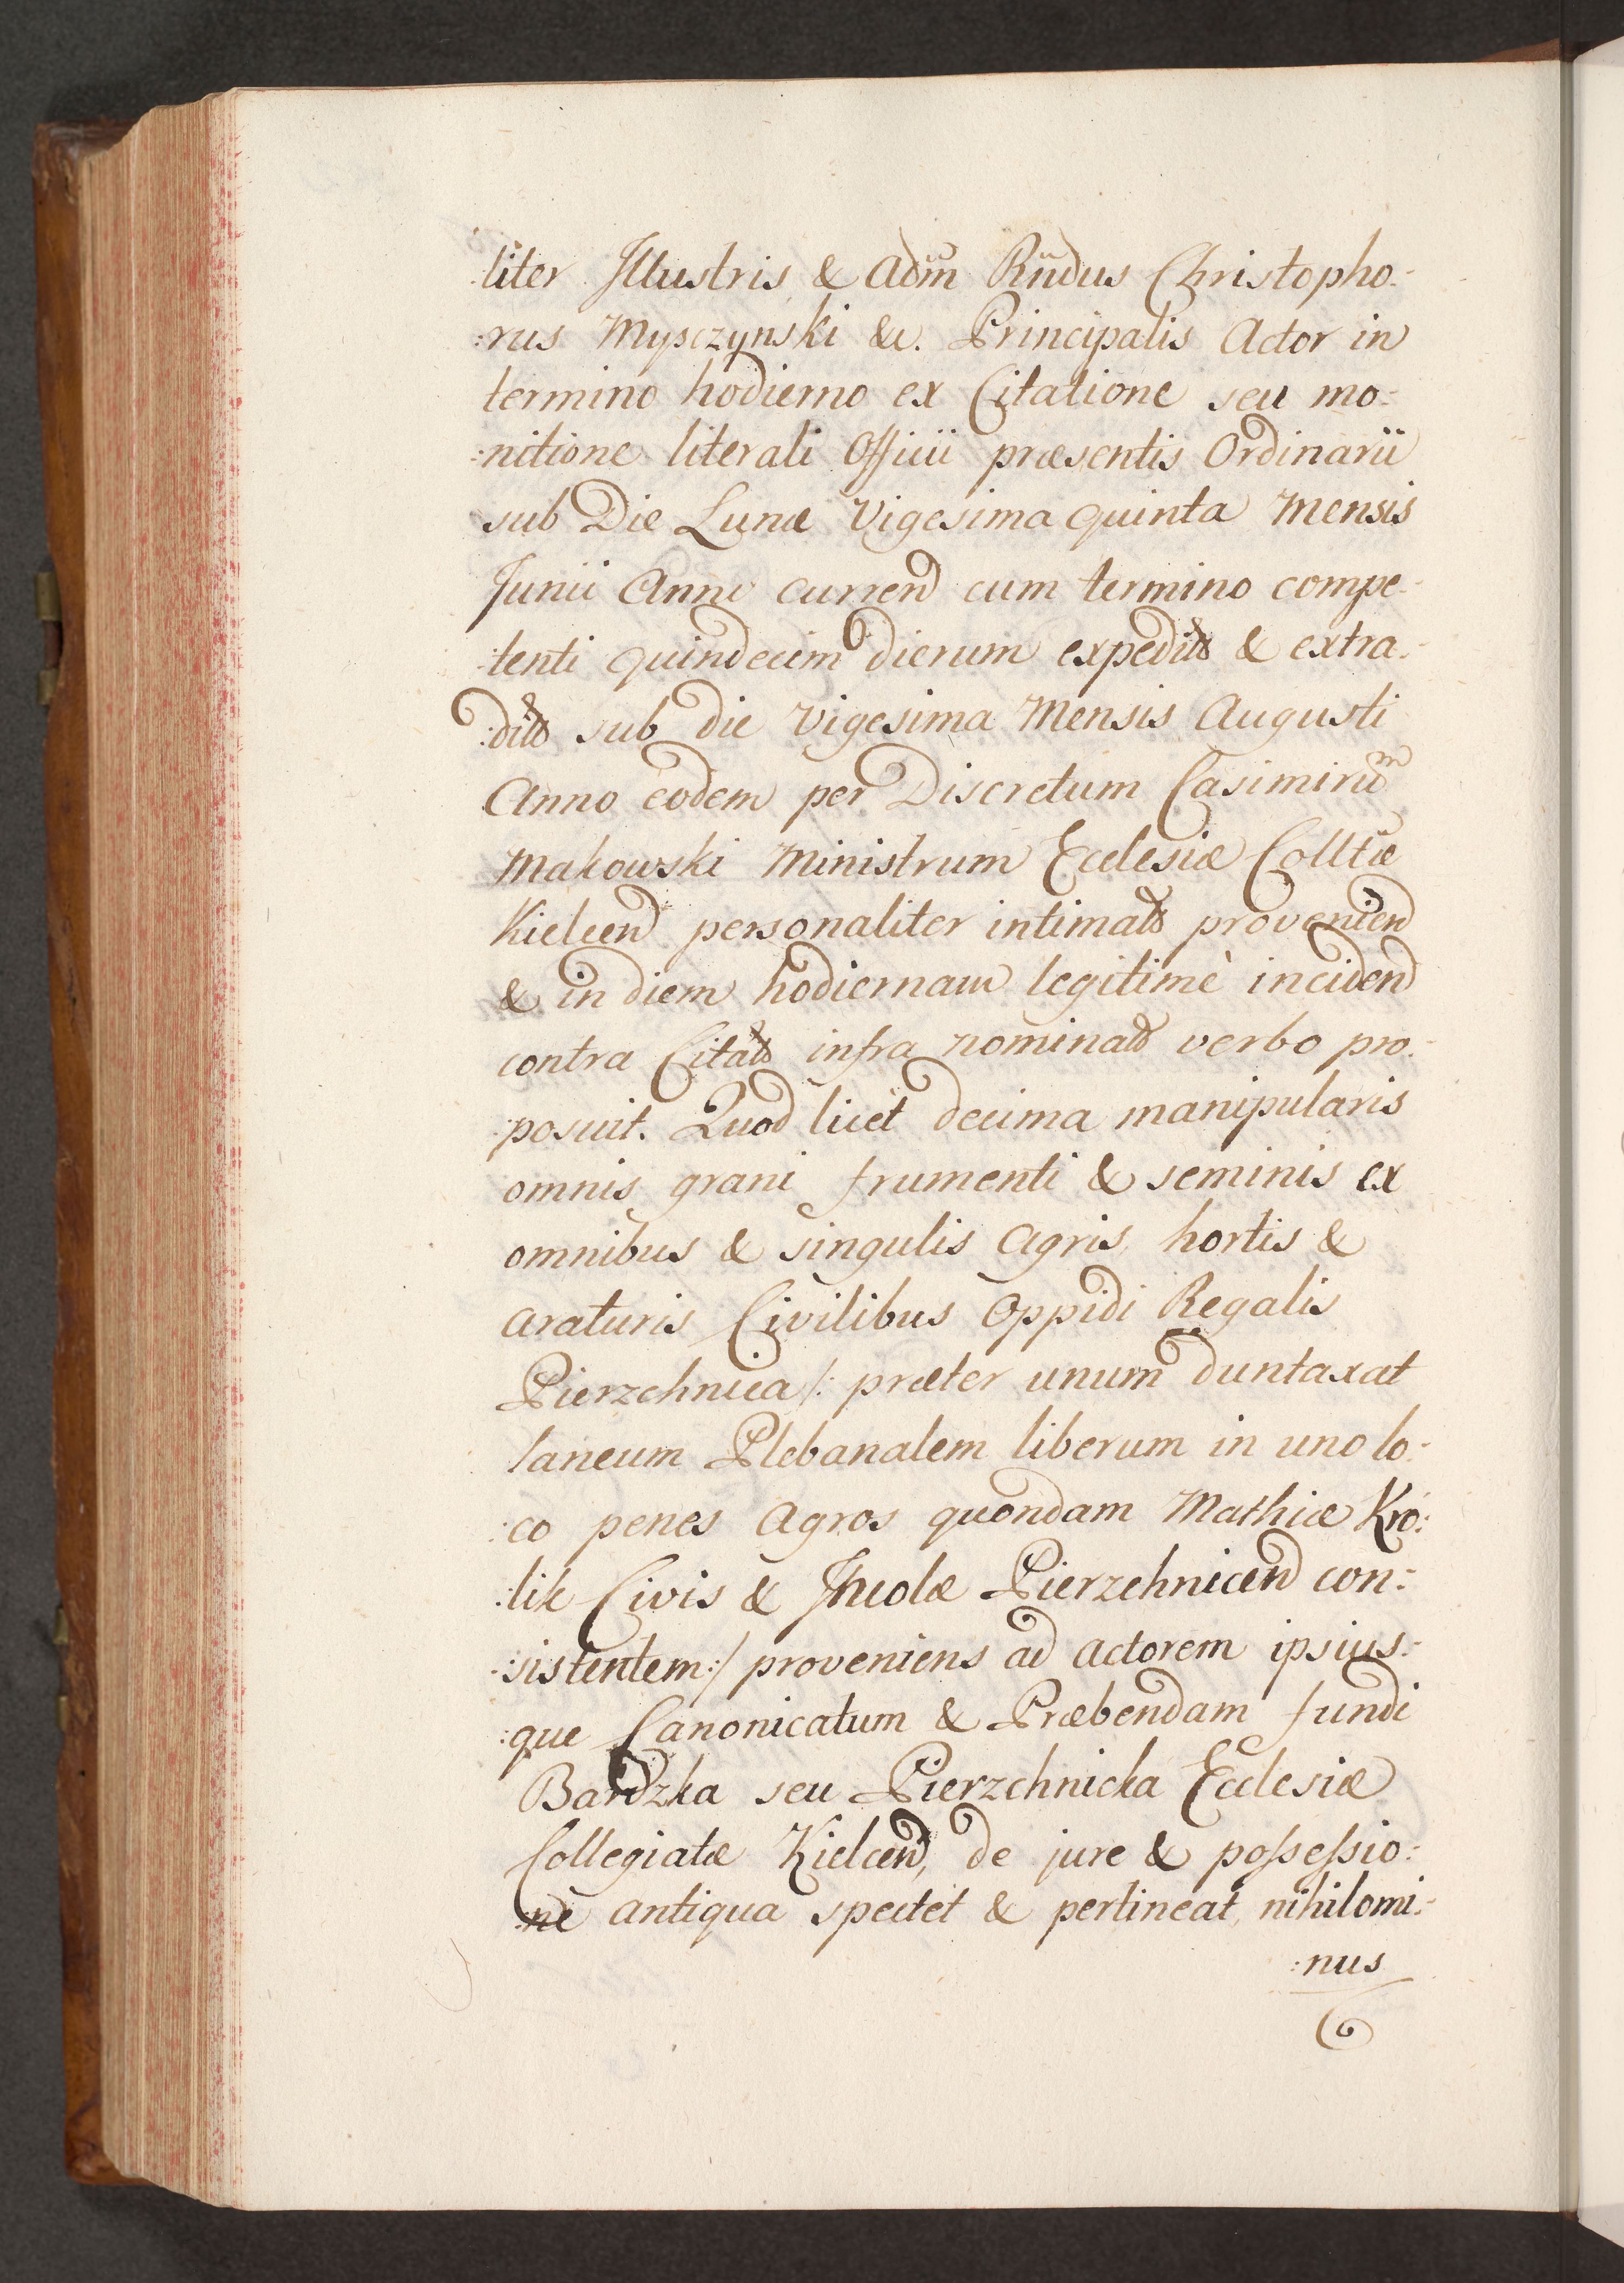 :liter Illustris & Adm̃ Rñdus Christopho-
:rus Mysczynski &c. Principalis Actor in
termino hodierno ex Citatione seu mo:
:nitione literali Officii præsentis Ordinarii
sub Die Lunæ Vigesima quinta Mensis
Junii Anno curren cum termino compe-
:tenti quindecim dierum expedit & extra-
:dit sub die Vigesima Mensis Augusti
Anno eodem per Discretum Casimirum
Makowski Ministrum Ecclesiæ Colltæ
Kielcen personaliter intimat provenien
& in diem hodiernam legitimè inciden
contra Citat infra nominat verbo pro-
:posuit. Quod licèt decima manipularis
omnis grani frumenti & seminis ex
omnibus & singulis Agris hortis &
araturis Civilibus Oppidi Regalis
Pierzchnica /: præter unum duntaxat
laneum Plebanalem liberum in uno lo-
:co penes Agros quondam Mathiæ Kro:
:lik Civis & Incolæ Pierzchnicen con:
:sistentem :/ proveniens ad actorem ipsius:
:que Canonicatum & Præbendam fundi
Bardzka seu Pierzchnicka Ecclesiæ
Collegiatæ Kielcen, de jure & possessio:
:ne antiqua spectet & pertineat, nihilomi:
:nus